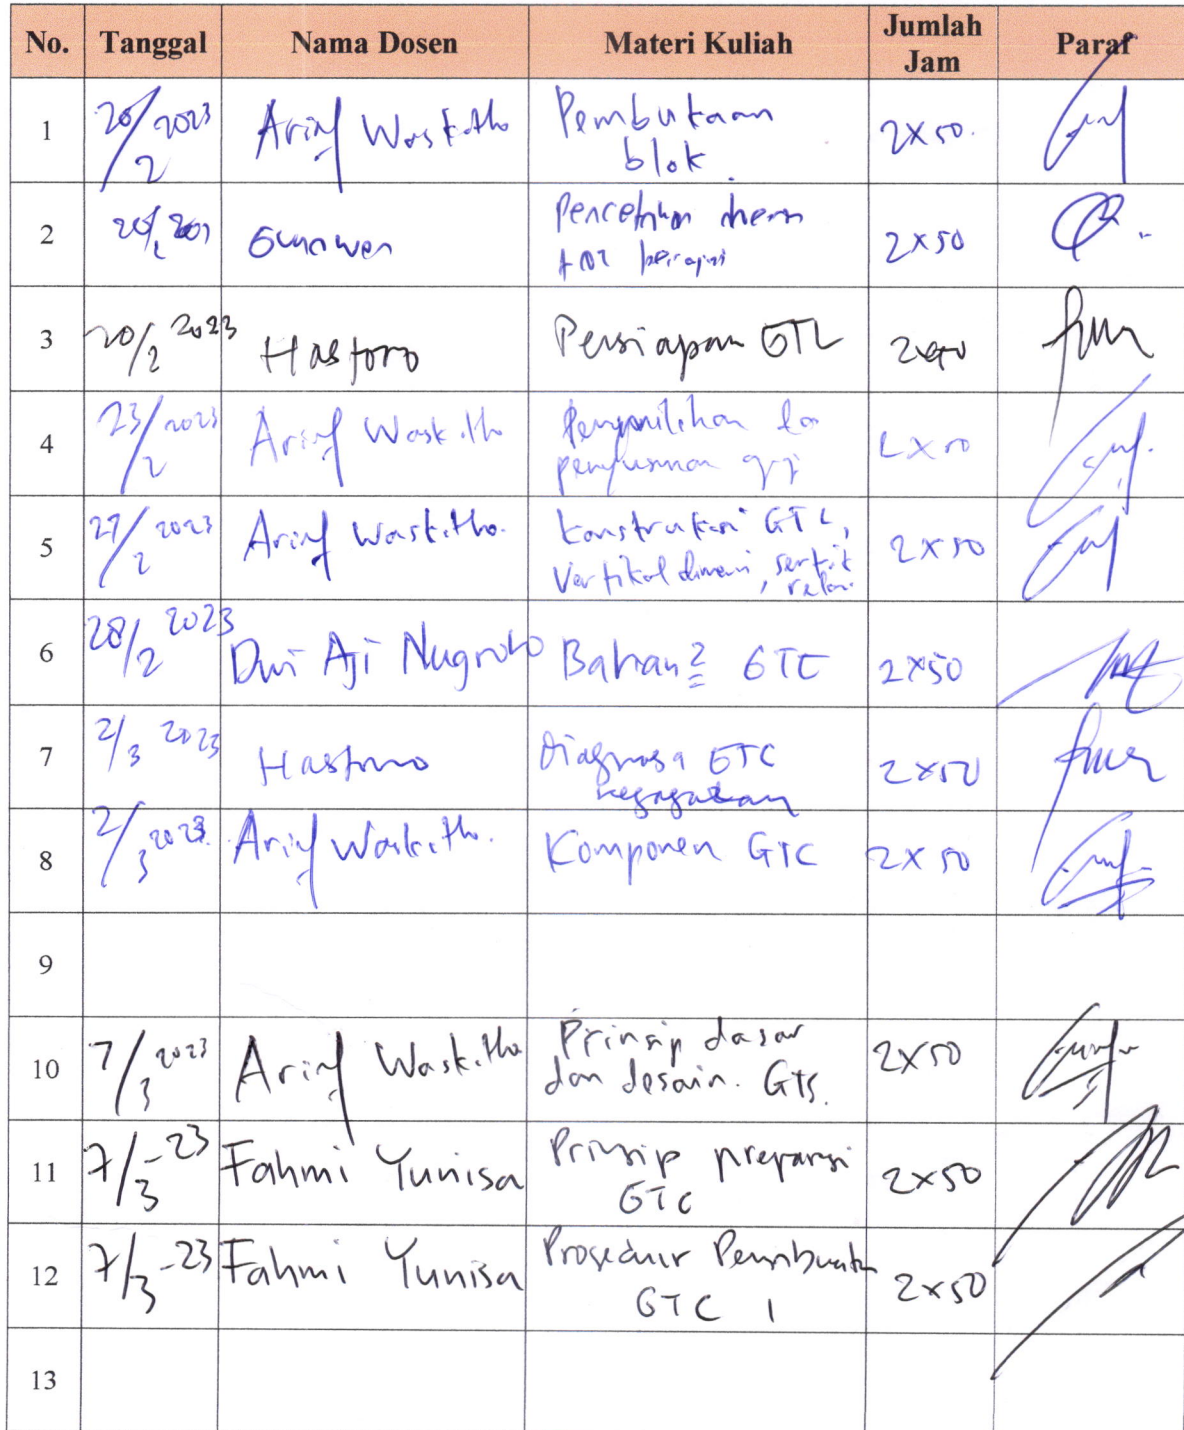 No. Tanggal Nama Dosen Materi Kuliah Jumlah Jam Paraf
1 20/2 2023 Arief Waskitho Pembukaan blok 2x50
2 Gunawan 2x50
3 20/2 2023 Hastoro Persiapan GTL
4 23/2 2023 Arief Waskitho 2x50
5 27/2 2023 Arief Waskitho. Konstruksi GTL, Vertikal dimensi, 2x50
6 28/2 2023 Dwi Aji Nugroho Bahan2 GTC 2x50
7 2/3 2023 Hastoro Diagnosa GTC kegagalan 2x50
8 2/3 2023 Arief Waskitho. Komponen GTC 2x50
9
10 7/3 2023 Arief Waskitho Prinsip dasar dan desain. GTS. 2x50
11 7/3-23 Fahmi Yunisa Prinsip preparasi GTC 2x50
12 7/3-23 Fahmi Yunisa Prosedur Pembuatan GTC 1 2x50
13